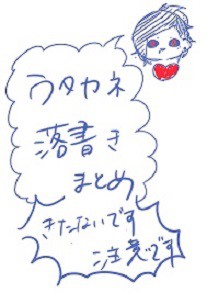 ウタカネ
落書き
まとめ
きたないです
注意です